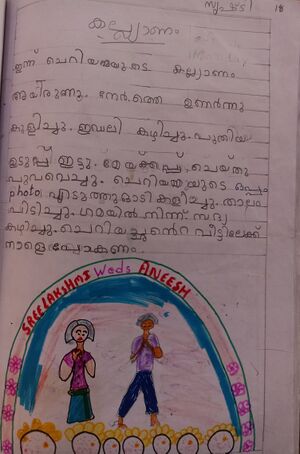 18
കല്ല്യാണം
ഇന്ന് ചെറിയമ്മയുടെ കല്ല്യാണം
ആയിരുന്നു. നേരത്തെ ഉണർന്നു
കുളിച്ചു. ഇഡലി കഴിച്ചു. പുതിയ
ഉടുപ്പ് ഇട്ടു. മേയ്ക്കപ്പ് ചെയ്തു
പൂവെച്ചു. ചെറിയമ്മയുടെ ഒപ്പം
photo എടുത്തു ഓടി കളിച്ചു. താലം
പിടിച്ചു. ഗമയിൽ നിന്ന് സദ്യ
കഴിച്ചു. ചെറിയച്ഛൻെറ വീട്ടിലേക്ക്
നാളെ പോകണം
SREELAKSHMI Weds ANEESH